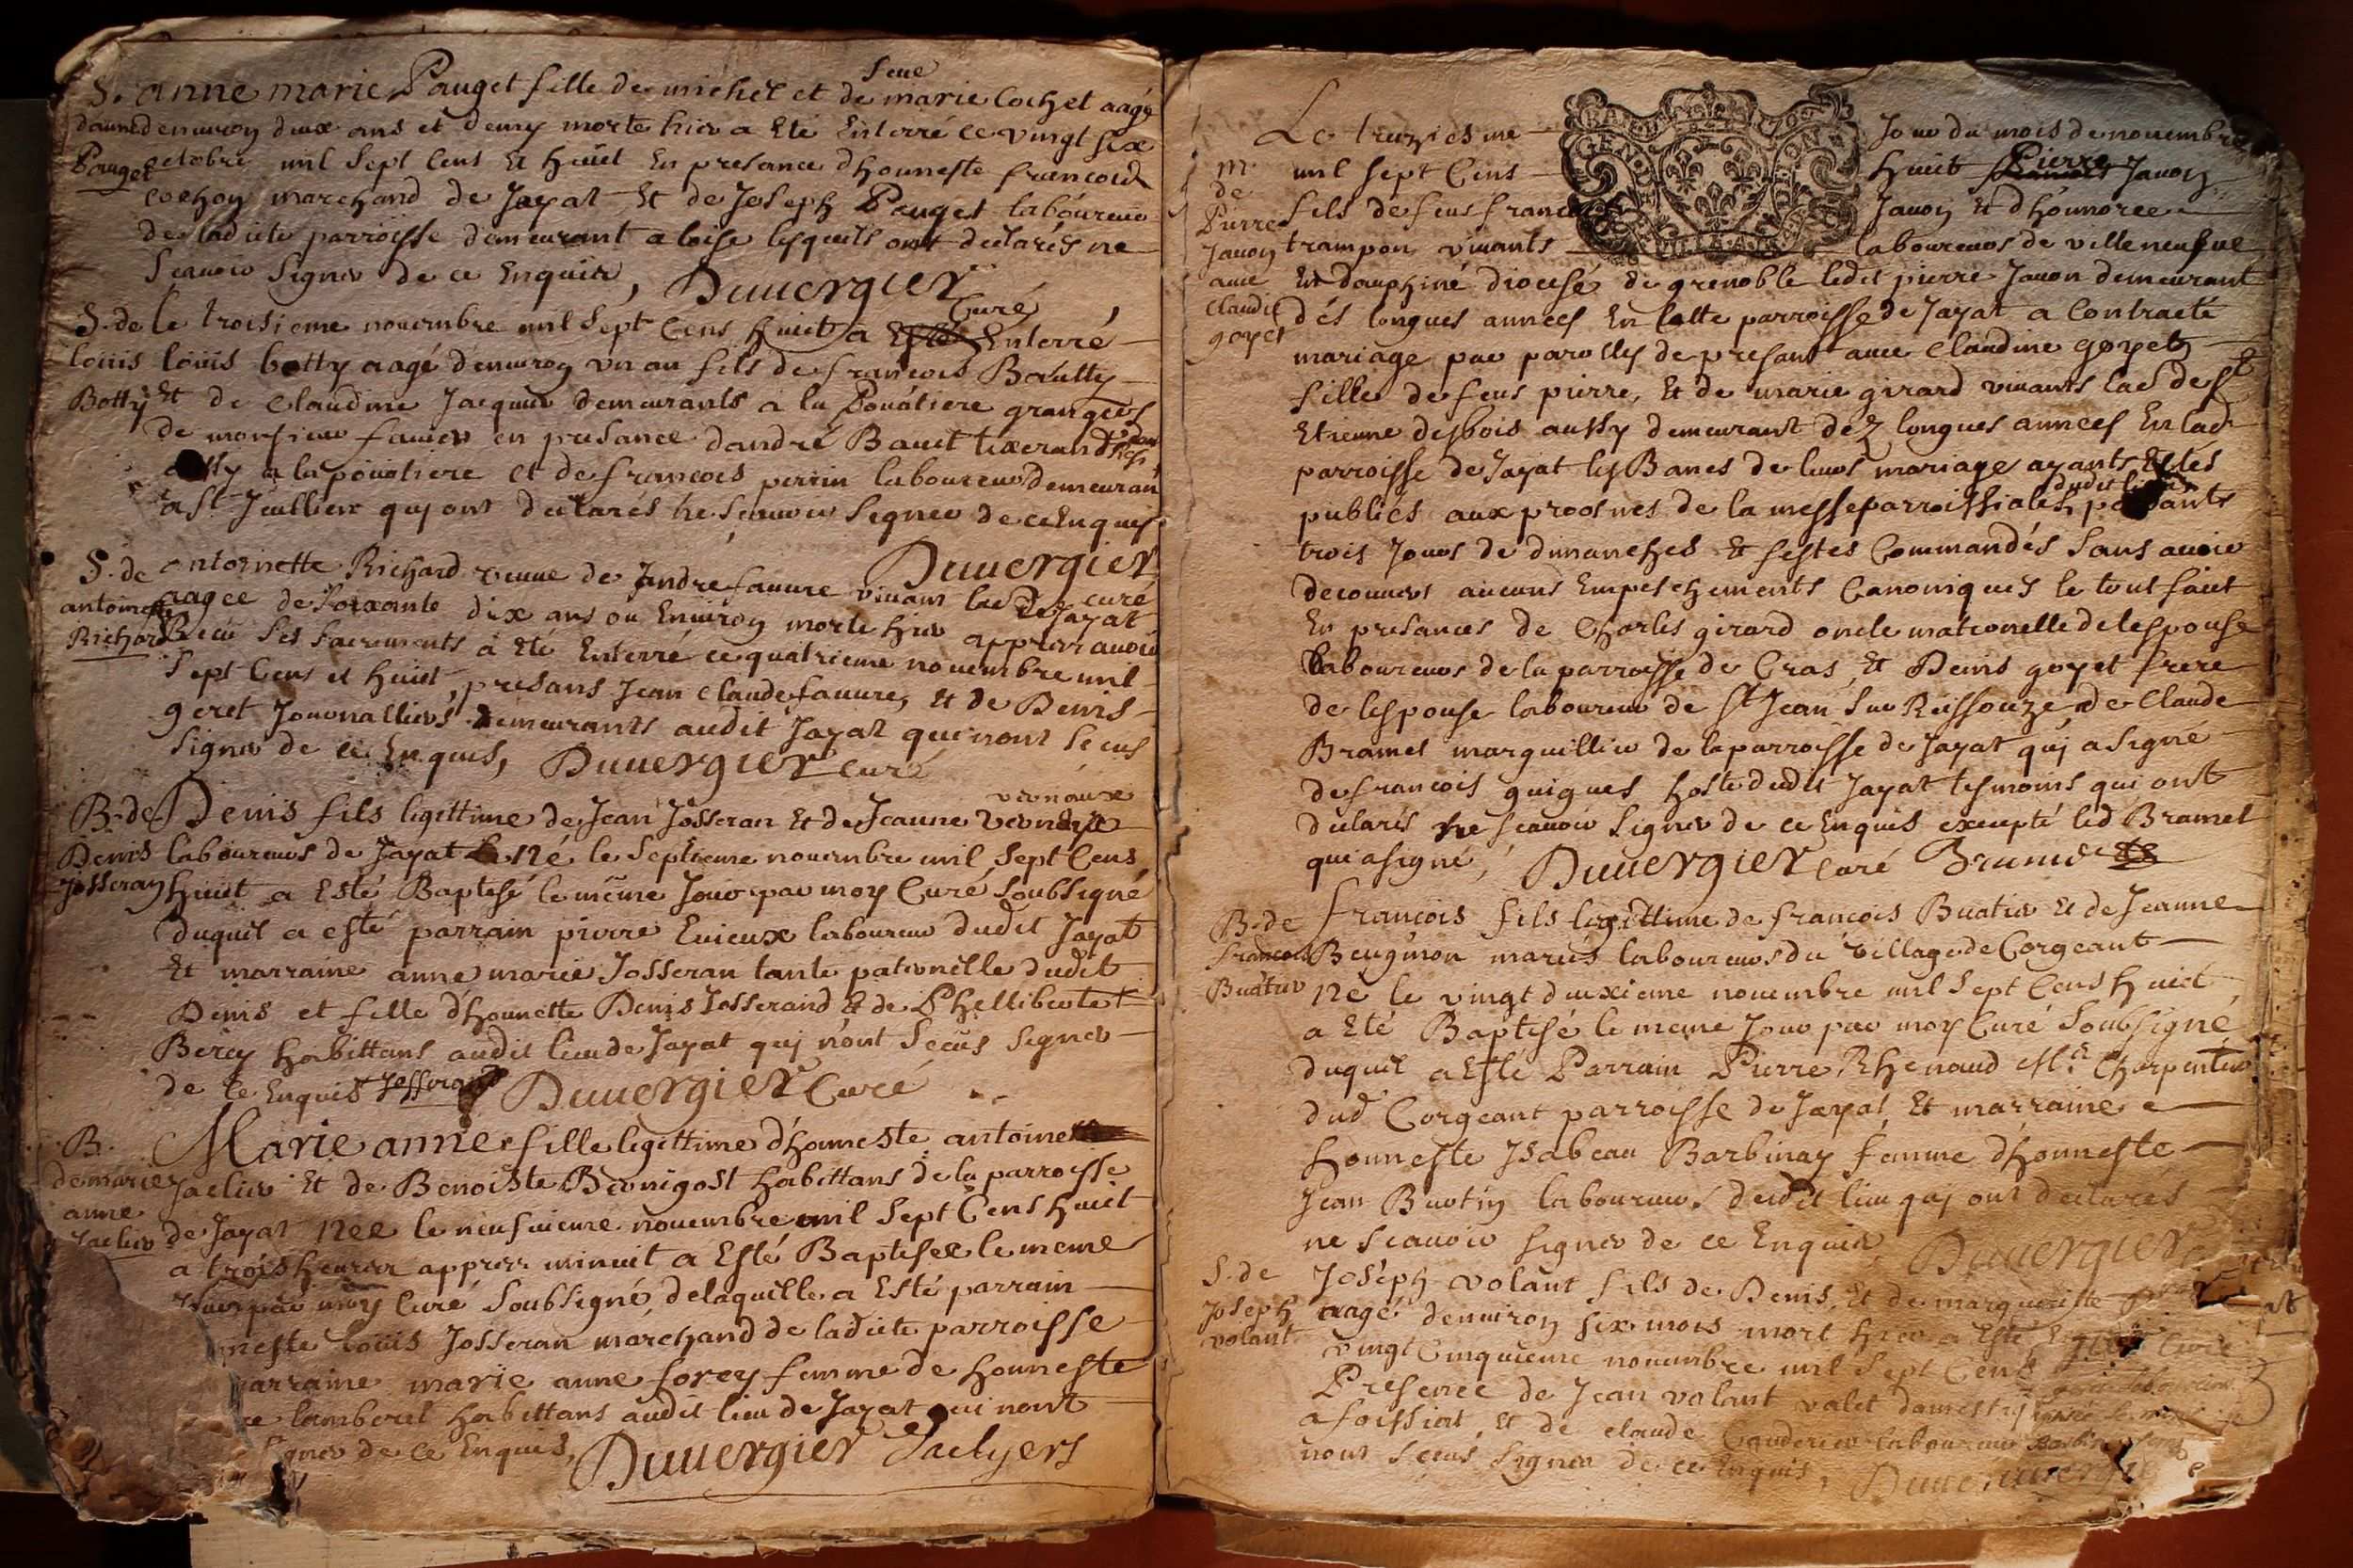 S. anne marie Pauget fille de michel et de feue marie Cochet aagé
danne denuiron deux ans et demy morte hier a Eté Enterré ce vingt six
Pauget octobre mil sept Cens Et huict En presance dhonneste francois
cochon marchand de Jayat Et de Joseph Pauget laboureur
de ladicte parroisse demeurant a loise lesquels ont declarés ne
scauoir signer de ce Enquis, Duuergier
Curé
S. de le troisieme nouembre mil sept Cens huict a Enterré
loüis loüis botty aagé denuiron vn an fils de francois Baulty
Botty Et de Claudine Jacquier demeurants a la Pouatiere granges
de monsieur fauier en presance dandré Bauet tixerand
a la pouatiere et de francois perrin laboureur demeurant
a St Juillien quj ont declarés ne scauoir signer de ce Enquis
Duuergier
curé
S. de antoinette Richard veuue de andre fauure viuant lad de Jayat
antoinette aagee de soixante dix ans ou Enuiron morte hier appres auoir
Richard Receu ses sacrements a Eté Enterré ce quatrieme nouembre mil
sept Cens et huict, presans Jean claude fauure, et de Denis
geret Journalliers demeurants audit Jayat qui nont sceus
signer de ce Enquis, Duuergier curé
vernoux
B. de Denis fils legittime de Jean Josseran Et de Jeanne
Denis laboureurs de Jayat né le septieme nouembre mil sept Cens
Josseran huict a Esté Baptisé le même Jour par moy Curé soubsigné
duquel a esté parrain pierre Euieux laboureur dudit Jayat
Et marraine anne marie Josseran tante paternelle dudit
Denis et fille dhonnette Denis Josserand et de Phelliberte
Berey habittans audit lieu de Jayat quj nont sceus signer
de ce Enquis Josserand Duuergier Curé
B. Marie anne fille legittime dhonneste antoine
de marie Jaclier Et de Benoiste Beonigost habittans de la parroisse
anne de Jayat née le neufuieme nouembre mil sept Cens huict
Jaclier a trois heures appres minuit a Esté Baptisee le meme
Jour par moy Curé soubsigné, delaquelle a Esté parrain
neste loüis Josseran marchand de ladicte parroisse
arraine marie anne forey femme de honneste
re lamberet habittans audit lieu de Jayat qui nont
gner de ce Enquis, Duuergier Jaclyers
Le treuziesme Jour du mois de nouembre
m. mil sept Cens huict Pierre Jauon
de
Pierre fils de feus francois Jauon Et dhonnoree
Jauon trampon viuants laboureurs de villeneufue
GEN DE BOURG VILLE
auec En dauphiné diocese de grenoble ledit pierre Jauon demeurant
Claudine dés longues années En latte parroisse de Jayat a Contracté
goyet mariage par parolles de presant auec Claudine goyet
fille de feus pierre, Et de marie girard viuants lad de St
Etienne desbois aussy demeurant dez longues années En lad
parroisse de Jayat les Bancs de leurs mariage ayants Estés
publiés aux proosnes de la messe parroissialle pandants
trois Jours de dimanches Et festes Commandés sans auoir
decouuers aucuns Empeschements Canoniques le tout faict
En presances de Charles girard oncle maternelle de lespouse
laboureurs de la parroisse de Cras, Et Denis goyet frere
de lespouse laboureur de St Jean sur Reissouze de Claude
Bramet marguillier de la parroisse de Jayat quj a signé
de francois guigues hoste dudit Jayat tesmoins qui ont
declarés ne scauoir signer de ce Enquis excepté led Bramet
qui a signé, Duuergier Curé Bramet
B. de francois fils legittime de francois Buatier Et de Jeanne
francois Beugnon mariés laboureurs du village de Corgeant
Buatier né le vingt deuxieme nouembre mil sept Cens huict
a Eté Baptisé le meme Jour par moy Curé soubsigné
duquel a Esté Parrain Pierre Rhenaud Me Charpentier
dud Corgeant parroisse de Jayat Et marraine
honneste Isabeau Barbinay femme dhonneste
Jean Buotin laboureur dudit lieu quj ont declarés
ne scauoir signer de ce Enquis Duuergier
S. de Joseph volant fils de Denis, Et de marguerite
Joseph aagé denuiron six mois mort hier a Esté
volant vingt Cinquieme nouembre mil sept Cens
Presence de Jean volant valet domestiq
a foissiat, Et de claude laboureur
nont sceus signer de ce Enquis,